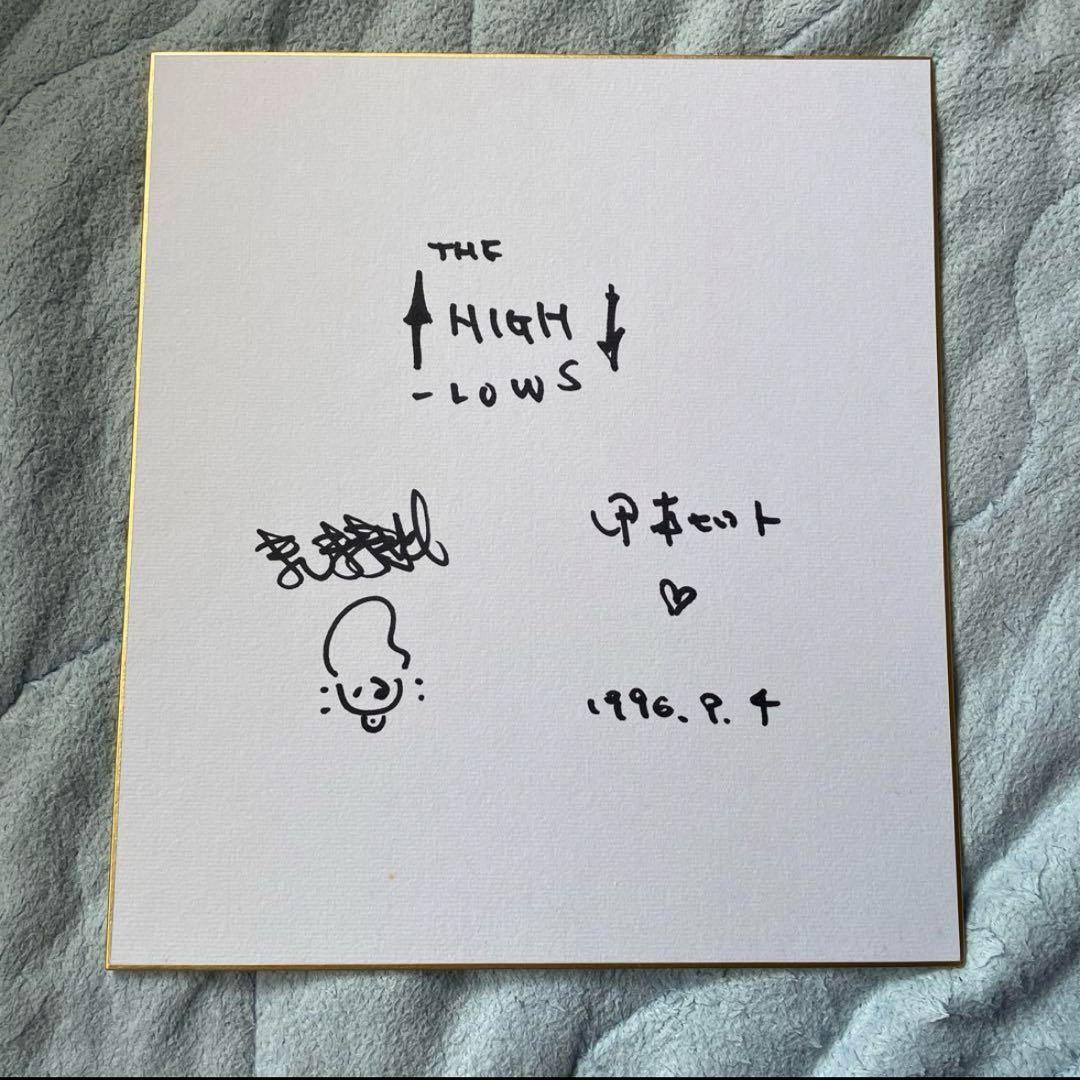 THE
HIGH
-LOWS
甲本ヒロト
1996.9.4